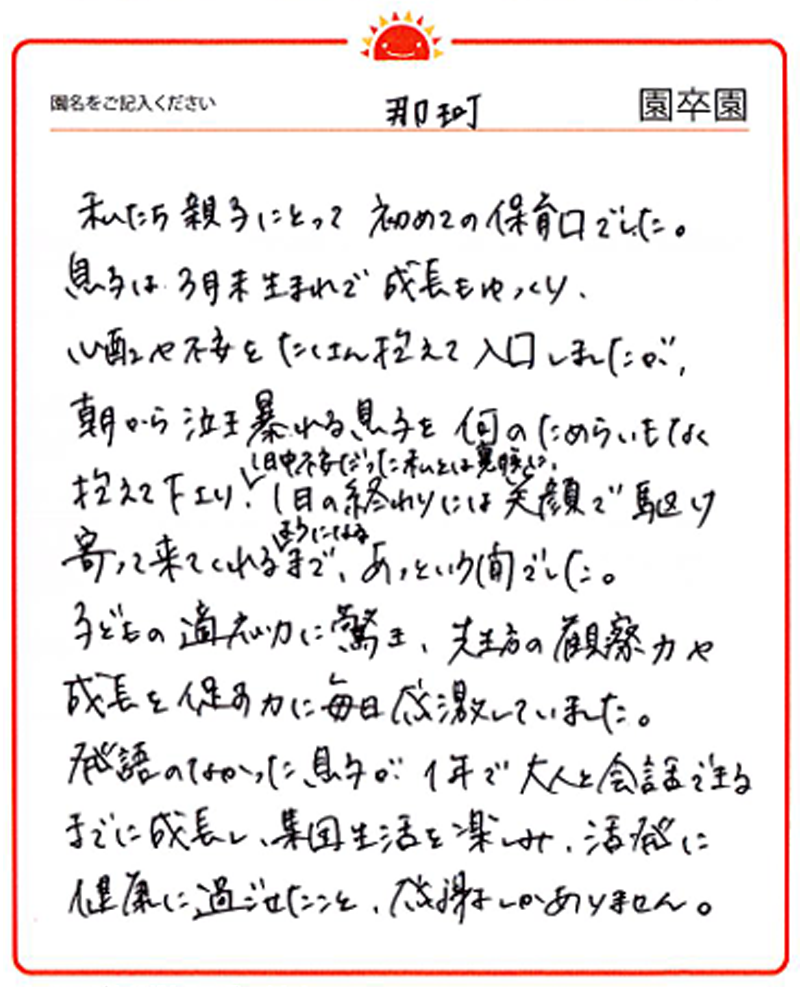 園名をご記入ください 那珂 園卒園
私たち親子にとって 初めての保育口でした。
息子は 3月末生まれで 成長もゆっくり、
心配や不安を たくさん抱えて 入口しましたが、
朝から 泣き暴れる息子を 何のためらいもなく
1日中不安だった私とは裏腹に、
抱えて下さり、1日の終わりには笑顔で駆け
ようになる
寄って来てくれるまで、あっという間でした。
子どもの適応力に驚き、先生方の観察力や
成長を促す力に毎日感激していました。
発語のなかった息子が 1年で大人と会話できる
までに成長し、集団生活を楽しみ、活発に
健康に過ごせたこと、感謝しかありません。